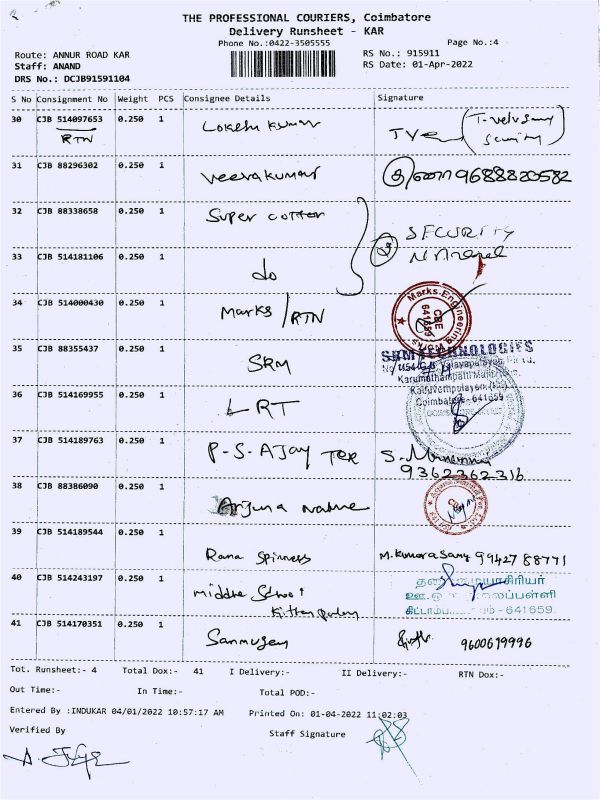 THE PROFESSIONAL COURIERS, Coimbatore
Delivery Runsheet - KAR
Phone No.:0422-3505555
Page No.:4
Route: ANNUR ROAD KAR
RS No.: 915911
Staff: ANAND
RS Date: 01-Apr-2022
DRS No.: DCJB91591104
S No Consignment No Weight PCS Consignee Details Signature
30 CJB 514097653 0.250 1 Lokesh Kumar
RTN
31 CJB 88296302 0.250 1 Veerakumar 9688820582
32 CJB 88338658 0.250 1 Super cotten SECURITY
33 CJB 514181106 0.250 1 do
34 CJB 514000430 0.250 1 Marks / RTN
Marks Engineering Works
CBE
641659
35 CJB 88355437 0.250 1 SRM
TECHNOLOGIES
Coimbatore - 641659
36 CJB 514169955 0.250 1 LRT
37 CJB 514189763 0.250 1 P-S-AJay Tex
9362362316
38 CJB 88386090 0.250 1 Arjuna Nature
39 CJB 514189544 0.250 1 Rana Spinners M.Kumarasamy 9942788771
40 CJB 514243197 0.250 1 middle School
- 641659.
41 CJB 514170351 0.250 1 Sanmugam 9600619996
Tot. Runsheet:- 4 Total Dox:- 41 I Delivery:- II Delivery:- RTN Dox:-
Out Time:- In Time:- Total POD:-
Entered By :INDUKAR 04/01/2022 10:57:17 AM Printed On: 01-04-2022 11:02:03
Verified By Staff Signature